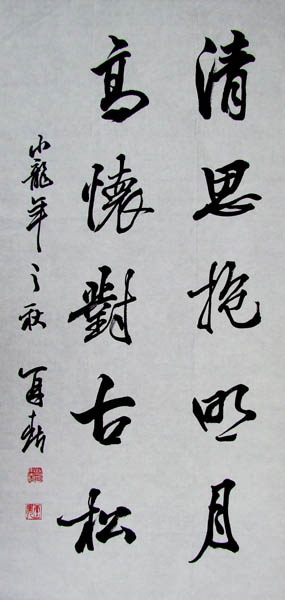 清思抱明月
高懷對古松
小龍年之秋